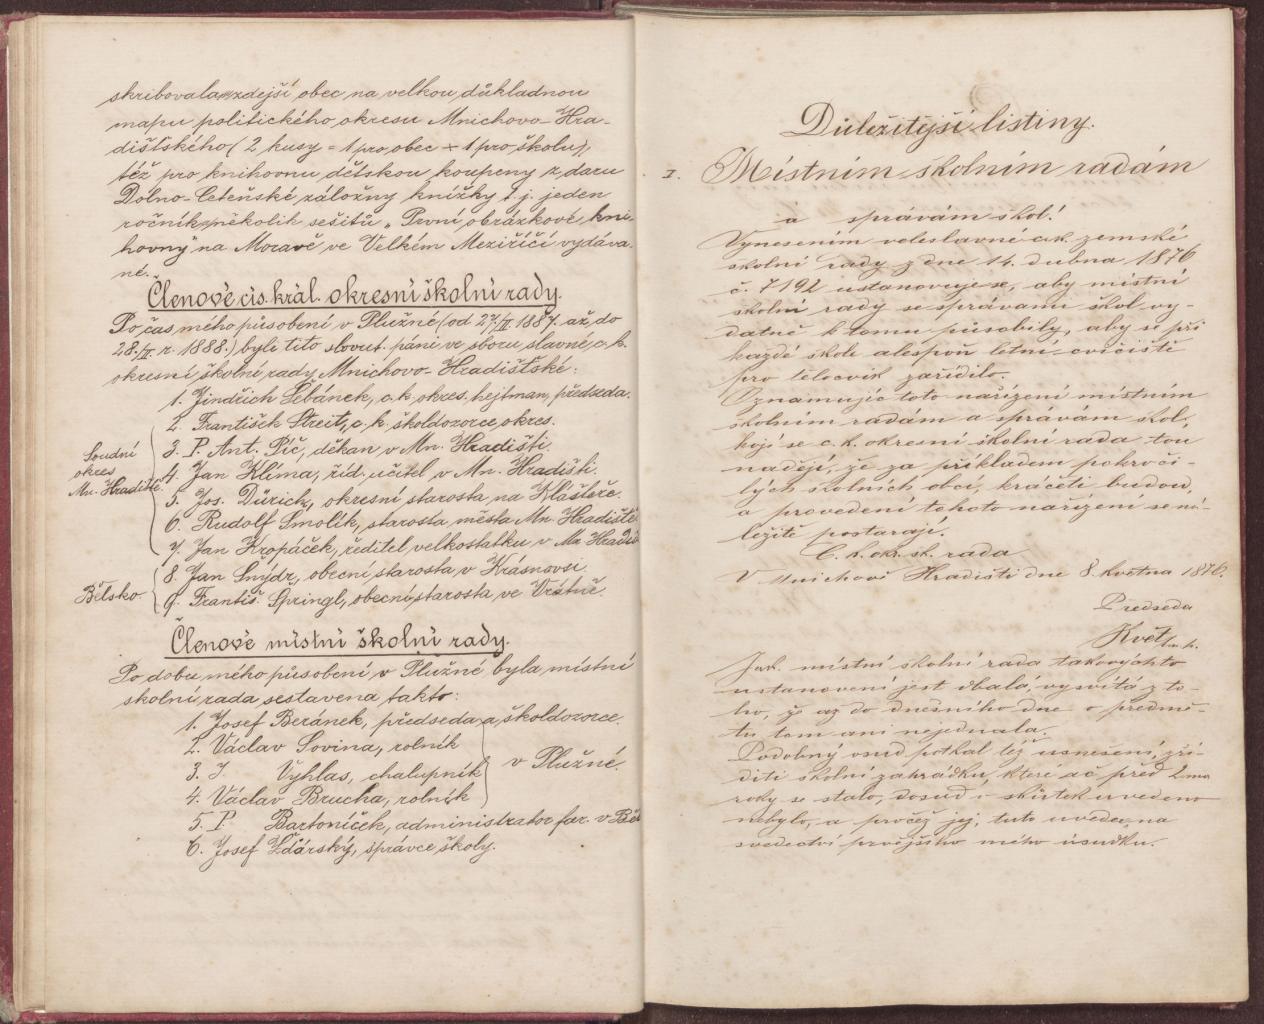 skribovala zdejší obec na velkou důkladnou
mapu politického okresu Mnichovo-Hra-
dišťského (2 kusy = 1 pro obec + 1 pro školu),
též pro knihovnu dětskou koupeny z daru
Dolno-Cetenské záložny knížky t. j. jeden
ročník několik sešitů „První obrázkové kni-
hovny" na Moravě ve Velkém Meziříčí vydáva-
né.
Členové cís. král. okresní školní rady.
Po čas mého působení v Plužné (od 27/II. 1887. až do
28./II. r. 1888.) byli tito slovut. páni ve sboru slavné c. k.
okresní školní rady Mnichovo-Hradišťské:
1. Jindřich Lébánek, c. k. okres. hejtman, předseda.
2. František Streit, c. k. školdozorce okres.
Soudní
okres
Mn. Hradiště.
3. P. Ant. Píč, děkan v Mn. Hradišti.
4. Jan Klíma, říd. učitel v Mn. Hradišti.
5. Jos. Dürich, okresní starosta na Klášteře.
6. Rudolf Smolík, starosta města Mn. Hradiště
7. Jan Kropáček, ředitel velkostatku v Mn. Hradiš
Bělsko.
8. Jan Šnýdr, obecní starosta v Krásnovsi.
9. Františ. Springl, obecní starosta ve Vrátně.
Členové místní školní rady.
Po dobu mého působení v Plužné byla místní
školní rada sestavena takto:
1. Josef Beránek, předseda a školdozorce.
2. Václav Sovina, rolník
3. J. Vyhlas, chalupník
4. Václav Brucha, rolník
v Plužné.
5. P. Bartoníček, administrator far. v Běl
6. Josef Žďárský, správce školy.
Důležitější listiny.
I. Místním školním radám
a správám škol!
Vynesením veleslavné c. k. zemské
školní rady z dne 14. dubna 1876
č. 7192 ustanovuje se, aby místní
školní rady se správami škol vy-
datně k tomu působily, aby se při
každé škole alespoň letní cvičiště
pro tělocvik zařídilo.
Oznamujíc toto nařízení místním
školním radám a správám škol,
kojí se c. k. okresní školní rada tou
nadějí, že za příkladem pokroči-
lých školních obcí, kráčeti budou,
a provedení tohoto nařízení se ná-
ležitě postarají.
C. k. okr. šk. rada
V Mnichově Hradišti dne 8. května 1876.
Předseda
Květ m. p.
Jak místní školní rada takovýchto
ustanovení jest dbalá, vysvítá z to-
ho, že až do dnešního dne o předmě-
tu tom ani nejednala.
Podobný osud potkal též usnešení, zří-
diti školní zahrádku, které ač před 2ma
roky se stalo, dosud i skutek uvedeno
nebylo, a pročež jej tuto uveden na
svědectví prvějšího mého úsudku.